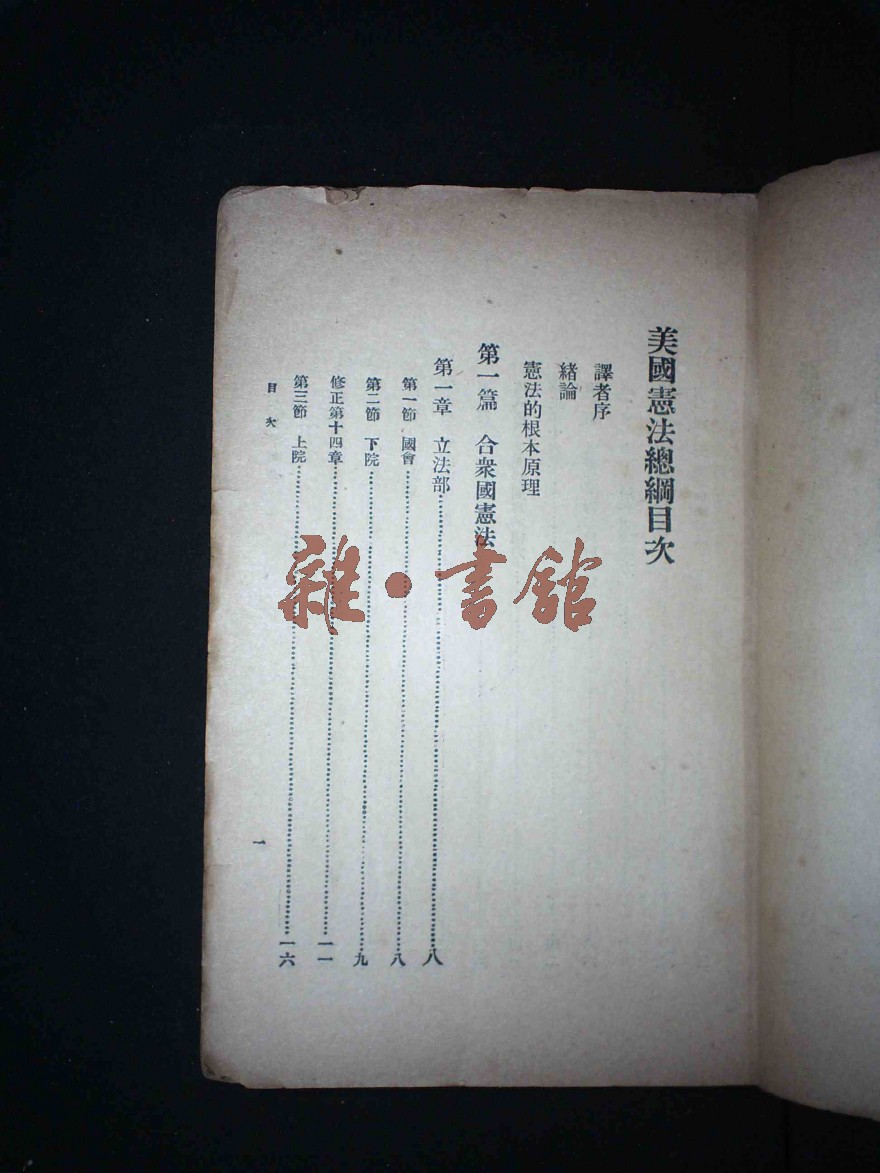 美國憲法總綱目次
譯者序
緒論
憲法的根本原理
第一篇 合衆國憲法
第一章 立法部……八
第一節 國會……八
第二節 下院……九
修正第十四章……一一
第三節 上院……一六
目次
一
雜·書館